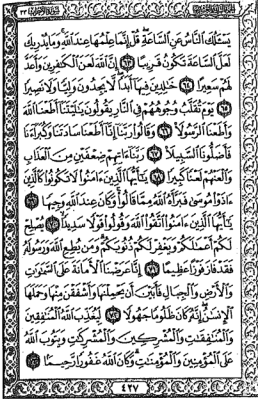 يَسْـَٔلُكَ ٱلنَّاسُ عَنِ ٱلسَّاعَةِ قُلْ إِنَّمَا عِلْمُهَا عِندَ ٱللَّهِ وَمَا يُدْرِيكَ
لَعَلَّ ٱلسَّاعَةَ تَكُونُ قَرِيبًا ٦٣ إِنَّ ٱللَّهَ لَعَنَ ٱلْكَٰفِرِينَ وَأَعَدَّ
لَهُمْ سَعِيرًا ٦٤ خَٰلِدِينَ فِيهَآ أَبَدًا لَّا يَجِدُونَ وَلِيًّا وَلَا نَصِيرًا
٦٥ يَوْمَ تُقَلَّبُ وُجُوهُهُمْ فِى ٱلنَّارِ يَقُولُونَ يَٰلَيْتَنَآ أَطَعْنَا ٱللَّهَ
وَأَطَعْنَا ٱلرَّسُولَا۠ ٦٦ وَقَالُوا۟ رَبَّنَآ إِنَّآ أَطَعْنَا سَادَتَنَا وَكُبَرَآءَنَا
فَأَضَلُّونَا ٱلسَّبِيلَا۠ ٦٧ رَبَّنَآ ءَاتِهِمْ ضِعْفَيْنِ مِنَ ٱلْعَذَابِ
وَٱلْعَنْهُمْ لَعْنًا كَبِيرًا ٦٨ يَٰٓأَيُّهَا ٱلَّذِينَ ءَامَنُوا۟ لَا تَكُونُوا۟ كَٱلَّذِينَ
ءَاذَوْا۟ مُوسَىٰ فَبَرَّأَهُ ٱللَّهُ مِمَّا قَالُوا۟ وَكَانَ عِندَ ٱللَّهِ وَجِيهًا ٦٩
يَٰٓأَيُّهَا ٱلَّذِينَ ءَامَنُوا۟ ٱتَّقُوا۟ ٱللَّهَ وَقُولُوا۟ قَوْلًا سَدِيدًا ٧٠ يُصْلِحْ
لَكُمْ أَعْمَٰلَكُمْ وَيَغْفِرْ لَكُمْ ذُنُوبَكُمْ وَمَن يُطِعِ ٱللَّهَ وَرَسُولَهُۥ
فَقَدْ فَازَ فَوْزًا عَظِيمًا ٧١ إِنَّا عَرَضْنَا ٱلْأَمَانَةَ عَلَى ٱلسَّمَٰوَٰتِ
وَٱلْأَرْضِ وَٱلْجِبَالِ فَأَبَيْنَ أَن يَحْمِلْنَهَا وَأَشْفَقْنَ مِنْهَا وَحَمَلَهَا
ٱلْإِنسَٰنُ إِنَّهُۥ كَانَ ظَلُومًا جَهُولًا ٧٢ لِّيُعَذِّبَ ٱللَّهُ ٱلْمُنَٰفِقِينَ
وَٱلْمُنَٰفِقَٰتِ وَٱلْمُشْرِكِينَ وَٱلْمُشْرِكَٰتِ وَيَتُوبَ ٱللَّهُ
عَلَى ٱلْمُؤْمِنِينَ وَٱلْمُؤْمِنَٰتِ وَكَانَ ٱللَّهُ غَفُورًا رَّحِيمًا ٧٣
٤٢٧